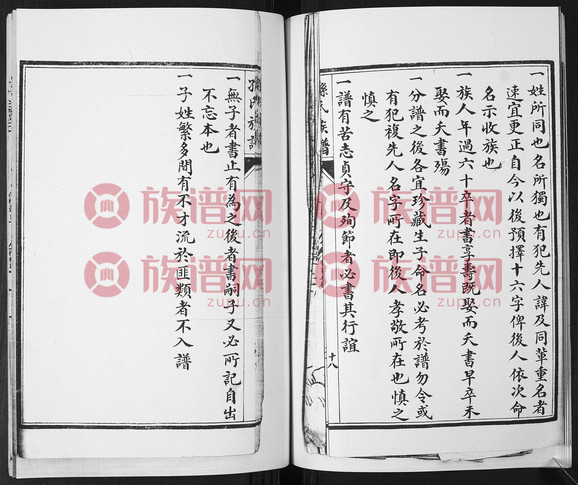 一姓所同也名所獨也有犯先人諱及同輩重名者
速宜更正自今以後預擇十六字俾後人依次命
名示收族也
一族人年過六十卒者書享壽既娶而夭書早卒未
娶而夭書殤
一分譜之後各宜珍藏生子命名必考於譜勿令或
有犯複先人名字所在即後人孝敬所在也慎之
慎之
一譜有苦志貞守及殉節者必書其行誼
孫氏族譜
十八
族譜
一無子者書止有為之後者書嗣子又必所記自出
不忘本也
一子姓繁多間有不才流於匪類者不入譜
族谱网
zupu.cn
族谱网
zupu.cn
族谱网
zupu.cn
族谱网
zupu.cn
族谱网
zupu.cn
族谱网
zupu.cn